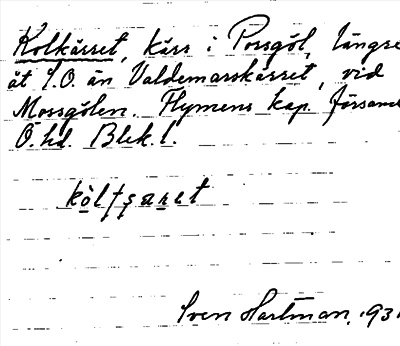 Kolkärret, kärr i Porsgöl, längre
åt S.O. än Valdemarskärret, vid
Mossgölen. Flymens kap. församl
Ö. hd. Blek. l.
Sven Hartman, 193